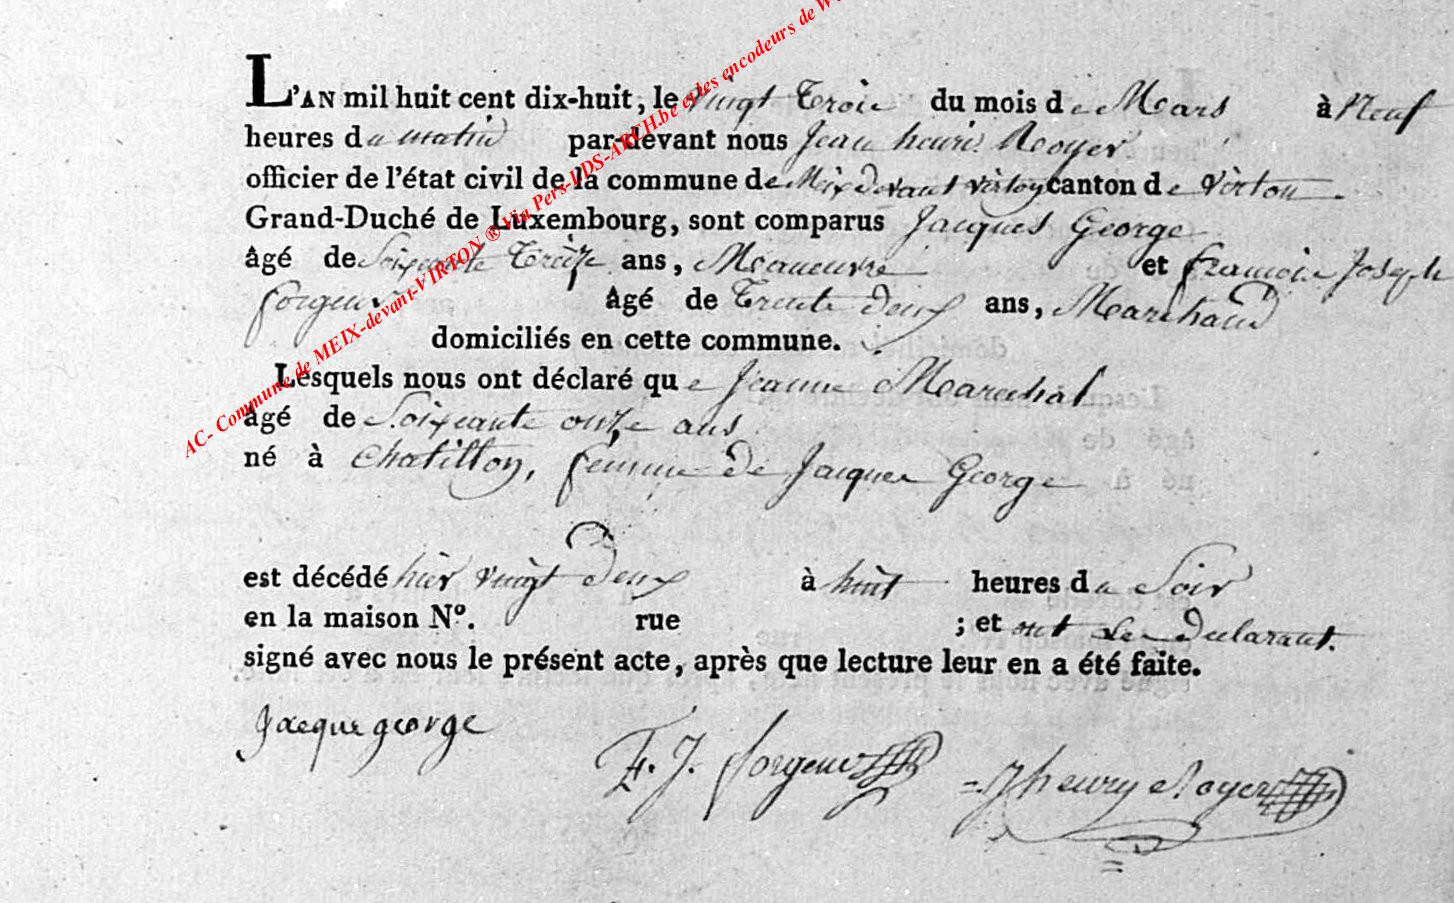 L'AN mil huit cent dix-huit, le vingt Trois du mois de Mars à Neuf
heures du matin par-devant nous Jean henri Royer
officier de l'état civil de la commune de Meix devant virton canton de Virton
Grand-Duché de Luxembourg, sont comparus Jacques George
âgé de Soixante Treize ans, Maneuvre et francois Joseph
forgeur âgé de Trente deux ans, Marchand
domiciliés en cette commune.
Lesquels nous ont déclaré que Jeanne Marechal
âgé de Soixante onze ans
né à Chatillon, femme de Jacques George
est décédé hier vingt deux à huit heures du Soir
en la maison Nº. rue ; et ont Les Declarant.
signé avec nous le présent acte, après que lecture leur en a été faite.
Jacque george
F. J. forgeur
J henry Royer
AC- Commune de MEIX-devant-VIRTON ® Via Pers-LDS-ARCH.be et les encodeurs de